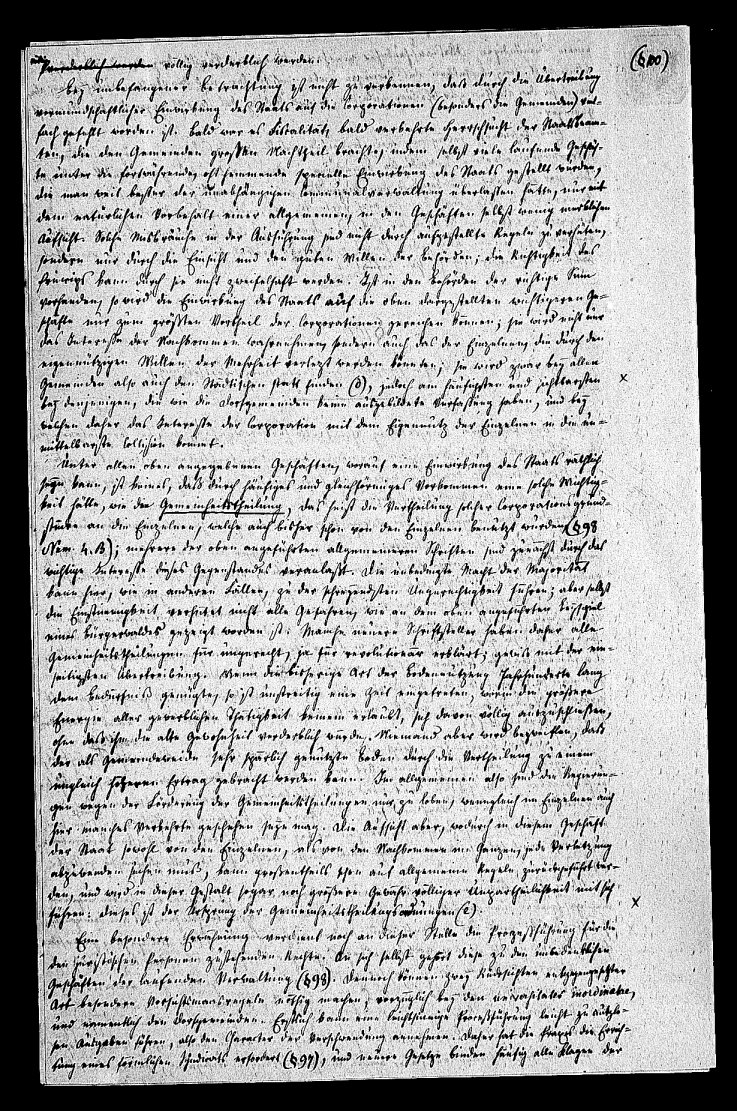 völlig verderblich werden.
(§ 100)
Bey unbefangener Betrachtung ist nicht zu verkennen, daß durch die Übertreibung
vormundschaftlicher Einwirkung des Staats auf die Corporationen (besonders die Gemeinden) viel-
fach gefehlt worden ist. Bald war es Fiscalität, bald verkehrte Herrschsucht der Staatsbeam-
ten, die den Gemeinden großen Nachtheil brachte, indem selbst viele laufende Geschäf-
te unter die fortwährende, oft hemmende specielle Einwirkung des Staats gestellt wurden,
die man weit besser der unabhängigen Communalverwaltung überlassen hätte, nur mit
dem natürlichen Vorbehalt einer allgemeinen, in den Geschäften selbst wenig merklichen
Aufsicht. Solche Misbräuche in der Ausführung sind nicht durch aufgestellte Regeln zu verhüten,
sondern nur durch die Einsicht und den guten Willen der Behörden; die Richtigkeit des
Princips kann durch sie nicht zweifelhaft werden. Ist in den Behörden der richtige Sinn
vorhanden, so wird die Einwirkung des Staats auf die oben dargestellten wichtigeren Ge-
schäfte nur zum größten Vortheil der Corporationen gereichen können; sie wird nicht nur
das Interesse der Nachkommen wahrnehmen sondern auch das der Einzelnen, die durch den
eigennützigen Willen der Mehrheit verletzt werden könnten; sie wird zwar bey allen
Gemeinden also auch den Städtischen statt finden (d), jedoch am häufigsten und sichtbarsten
bey denjenigen, die wie die Dorfgemeinden keine ausgebildete Verfassung haben, und bey
welchen daher das Interesse der Corporation mit dem Eigennutz der Einzelnen in die un-
mittelbarste Collision kommt.
Unter allen oben angegebenen Geschäften, worauf eine Einwirkung des Staats räthlich
seyn kann, ist keines, daß durch häufiges und gleichförmiges Vorkommen eine solche Wichtig-
keit hätte, wie die Gemeinheitstheilung, das heißt die Vertheilung solcher Corporationsgrund-
stücke an die Einzelnen, welche auch bisher schon von den Einzelnen benutzt wurden (§ 98
Num. 4. B); mehrere der oben angeführten allgemeineren Schriften sind zunächst durch das
wichtige Interesse dieses Gegenstandes veranlaßt. Die unbedingte Macht der Majorität
kann hier, wie in anderen Fällen, zu der schreyendsten Ungerechtigkeit führen; aber selbst
die Einstimmigkeit verhütet nicht alle Gefahren, wie an dem oben angeführten Beyspiel
eines Bürgerwaldes gezeigt worden ist. Manche neuere Schriftsteller haben daher alle
Gemeinheitstheilungen für ungerecht, ja für revolutionär erklärt; gewiß mit der ein-
seitigsten Übertreibung. Wenn die bisherige Art der Bodennutzung Jahrhunderte lang
dem Bedürfniß genügte, so ist unstreitig eine Zeit eingetreten, worin die größere
Energie aller gewerblichen Thätigkeit keinem erlaubt, sich davon völlig auszuschließen,
ohne daß ihm die alte Gewohnheit verderblich würde. Niemand aber wird bezweifeln, daß
der als Gemeindeweide sehr spärlich genutzte Boden durch die Vertheilung zu einem
ungleich höheren Ertrag gebracht werden kann. Im allgemeinen also sind die Regierun-
gen wegen der Förderung der Gemeinheitstheilungen nur zu loben, wenngleich im Einzelnen auch
hier manches Verkehrte geschehen seyn mag. Die Aufsicht aber, wodurch in diesem Geschäft
der Staat sowohl von den Einzelnen, als von den Nachkommen im Ganzen, jede Verletzung
abzuwenden suchen muß, kann großentheils schon auf allgemeine Regeln zurückgeführt wer-
den, und wird in dieser Gestalt sogar noch größere Gewähr völliger Unpartheilichkeit mit sich
führen: dieses ist der Ursprung der Gemeinheitstheilungsordnungen (e).
Eine besondere Erwähnung verdient noch an dieser Stelle die Prozeßführung für die
den juristischen Personen zustehenden Rechte. An sich selbst gehört diese zu den unbedenklichen
Geschäften der laufenden Verwaltung (§ 98). Dennoch können zwey Rücksichten entgegengesetzter
Art besondere Vorsichtsmaasregeln nöthig machen, vorzüglich bey den universitates inordinatae,
und namentlich den Dorfgemeinden. Erstlich kann eine leichtsinnige Proceßführung leicht zu nutzlo-
sen Ausgaben führen, also den Character der Verschwendung annehmen. Daher hat die Praxis die Errich-
tung eines förmlichen Syndicats erfordert (§ 97), und neuere Gesetze binden häufig alle Klagen der